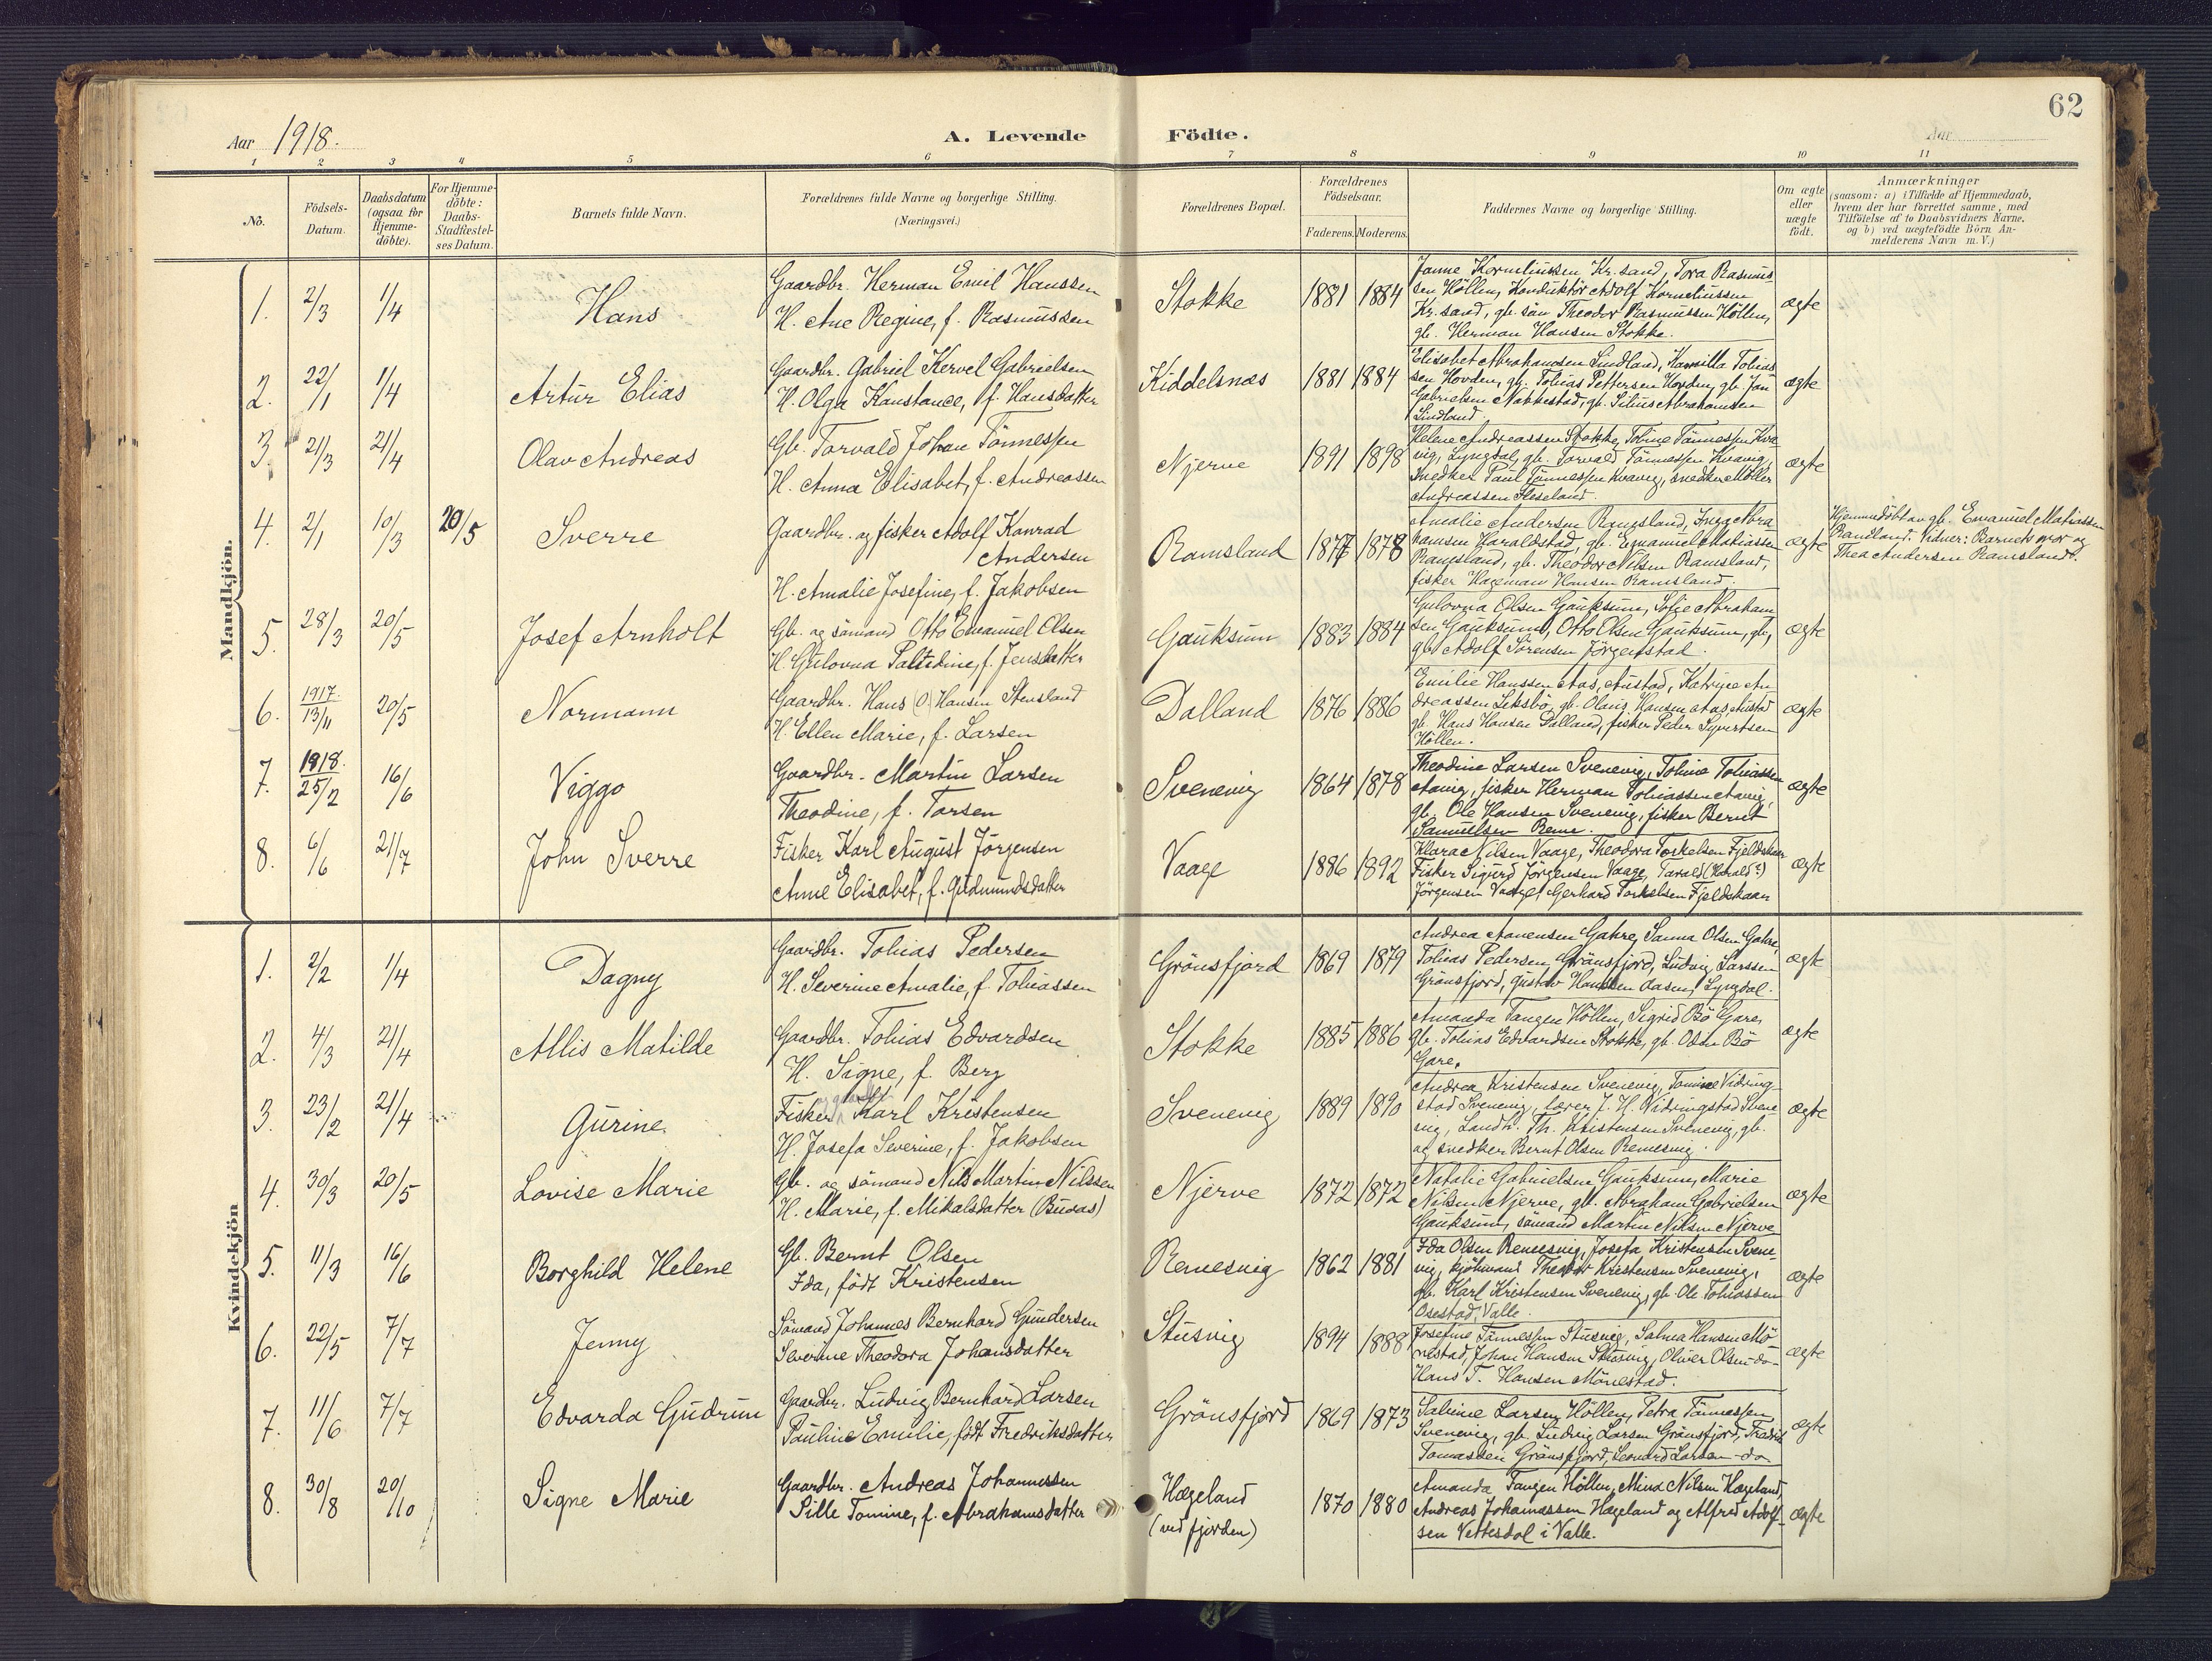 62
Aar 1918.
A. Levende Födte.
Aar
1 2 3 4 5 6 7 8 9 10 11
No.
Födsels-Datum.
Daabsdatum (ogsaa for Hjemme-döbte).
For Hjemme-döbte: Daabs-Stadfæstel-ses Datum.
Barnets fulde Navn.
Forældrenes fulde Navne og borgerlige Stilling. (Næringsvei.)
Forældrenes Bopæl.
Forældrenes Födselsaar.
Faderens. Moderens.
Faddernes Navne og borgerlige Stilling.
Om ægte eller uægte födt.
Anmærkninger
(saasom: a) i Tilfælde af Hjemmedaab,
hvem der har forrettet samme, med
Tilföielse af to Daabsvidners Navne,
og b) ved uægtefödte Börn An-
melderens Navn m. V.)
Mandkjön.
1. 2/3 1/4 Hans
Gaardbr. Herman Emil Hanssen
H. Ane Regine, f. Rasmussen
Stokke 1881 1884
Janne Korneliussen Kr.sand, Tora Rasmus-
sen Höllen, Konduktör Adolf Korneliussen
Kr.sand, gb. sön Theodor Rasmussen Höllen,
gb. Herman Hansen Stokke.
ægte
2. 22/1 1/4 Artur Elias
Gaardbr. Gabriel Kervel Gabrielsen
H. Olga Konstance, f. Hansdatter
Kiddelsnæs 1881 1884
Elisabet Abrahamsen Lindland, Kamilla Tobias-
sen Hovden, gb. Tobias Pettersen Hovden, gb. Jan
Gabrielsen Nakkestad, gb. Silius Abrahamsen
Lindland.
ægte
3. 21/3 21/4 Olav Andreas
Gb. Torvald Johan Tönnessen
H. Anna Elisabet, f. Andreassen
Njerve 1891 1898
Helene Andreassen Stokke, Tobine Tönnessen Kva-
vig, Lyngdal, gb. Torvald Tönnessen Kvavig,
snedker Paul Tönnessen Kvavig, snedker Möller
Andreassen Fleseland.
ægte
4. 2/1 10/3 20/5 Sverre
Gaardbr. og fisker Adolf Konrad
Andersen
H. Amalie Josefine, f. Jakobsen
Ramsland 1877 1878
Amalie Andersen Ramsland, Inga Abra-
hamsen Haraldstad, gb. Emanuel Matiassen
Ramsland, gb. Theodor Nilsen Ramsland,
fisker Hageman Hansen Ramsland.
ægte
Hjemmedöbt av gb. Emanuel Matiassen
Ramsland. Vidner: Barnets mor og
Thea Andersen Ramsland.
5. 28/3 20/5 Josef Arnholt
Gb. og sömand Otto Emanuel Olsen
H. Gulovna Jensdatter
Gauksum 1883 1884
Gulovna Olsen Gauksum, Sofie Abraham-
sen Gauksum, Otto Olsen Gauksum, gb.,
gb. Adolf Sörensen Jörgenstad.
ægte
6. 1917. 13/11 20/5 Normann
Gaardbr. Hans (O.) Hansen Stensland
H. Ellen Marie, f. Larsen
Dalland 1876 1886
Emilie Hanssen Aas, Austad, Katrine An-
dreassen Leksbö, gb. Olaus Hansen Aas, Austad
gb. Hans Hansen Dalland, fisker Peder Syvertsen
Höllen.
ægte
7. 1918. 25/2 16/6 Viggo
Gaardbr. Martin Larsen
Theodine, f. Torsen
Svenevig 1864 1878
Theodine Larsen Svenevig, Tobine Tobiassen
Aavig, fisker Herman Tobiassen Aavig,
gb. Ole Hansen Svenevig, fisker Bernt
Samuelsen Reme.
ægte
8. 6/6 21/7 John Sverre
Fisker Karl August Jörgensen
Anne Elisabet, f. Gudmundsdatter
Vaage 1886 1892
Klara Nilsen Vaage, Theodora Torkelsen Fjeldskaar
Fisker Sigurd Jörgensen Vaage, Tarald (Harald?)
Jörgensen Vaage, Gerhard Torkelsen Fjeldskaar
ægte
Kvindekjön
1. 2/2 1/4 Dagny
Gaardbr. Tobias Pedersen
H. Severine Amalie, f. Tobiassen
Grönsfjord 1869 1879
Andrea Aanensen Gahre, Sanna Olsen Gahre,
Tobias Pedersen Grönsfjord, Ludvig Larssen
Grönsfjord, Gustav Hansen Aasen, Lyngdal.
ægte
2. 4/3 21/4 Allis Matilde
Gaardbr. Tobias Edvardsen
H. Signe, f. Berg
Stokke 1885 1886
Amanda Tangen Höllen, Sigrid Bö Gare,
gb. Tobias Edvardsen Stokke, gb. Olsen Bö
Gare.
ægte
3. 23/2 21/4 Gurine
Fisker Karl Kristensen
H. Josefa Severine, f. Jakobsen
Svenevig 1889 1890
Andrea Kristensen Svenevig, Tomine Vidring-
stad Svenevig, lærer J. H. Vidringstad Svene-
vig, Landh. Th. Kristensen Svenevig, gb.
og snedker Bernt Olsen Remesvig.
ægte
4. 30/3 20/5 Lovise Marie
Gb. og sömand Nils Martin Nilssen
H. Marie, f. Mikalsdatter (Buaas)
Njerve 1872 1872
Natalie Gabrielsen Gauksum, Marie
Nilsen Njerve, gb. Abraham Gabrielsen
Gauksum, sömand Martin Nilsen Njerve
ægte
5. 11/3 16/6 Borghild Helene
Gb. Bernt Olsen
Ida, födt Kristensen
Remesvig 1862 1881
Ida Olsen Remesvig, Josefa Kristensen Svene-
vig, kjöbmand Theodor Kristensen Svenevig,
gb. Karl Kristensen Svenevig, gb. Ole Tobiassen
Osestad, Valle.
ægte
6. 22/5 7/7 Jenny
Sömand Johannes Bernhard Gundersen
Severine Theodora Johansdatter
Stusvig 1894 1888
Josefine Tönnessen Stusvig, Salma Hansen Mö-
nestad, Johan Hansen Stusvig, Oliver Olsen -do-
Hans T. Hansen Mönestad.
ægte
7. 11/6 7/7 Edvarda Gudrun
Gaardbr. Ludvig Bernhard Larsen
Pauline Emilie, födt Fredriksdatter
Grönsfjord 1869 1873
Sabine Larsen Höllen, Petra Tönnessen
Svenevig, gb. Ludvig Larsen Grönsfjord, Fredrik
Tomassen Grönsfjord, Leonard Larsen -do-
ægte
8. 30/8 20/10 Signe Marie
Gaardbr. Andreas Johannessen
Sille Tomine, f. Abrahamsdatter
Hægeland
(ved fjorden)
1870 1880
Amanda Tangen Höllen, Mina Nilsen Hægeland,
Andreas Johannessen Hægeland og Alfred Adolf-
sen Vettesdal i Valle.
ægte